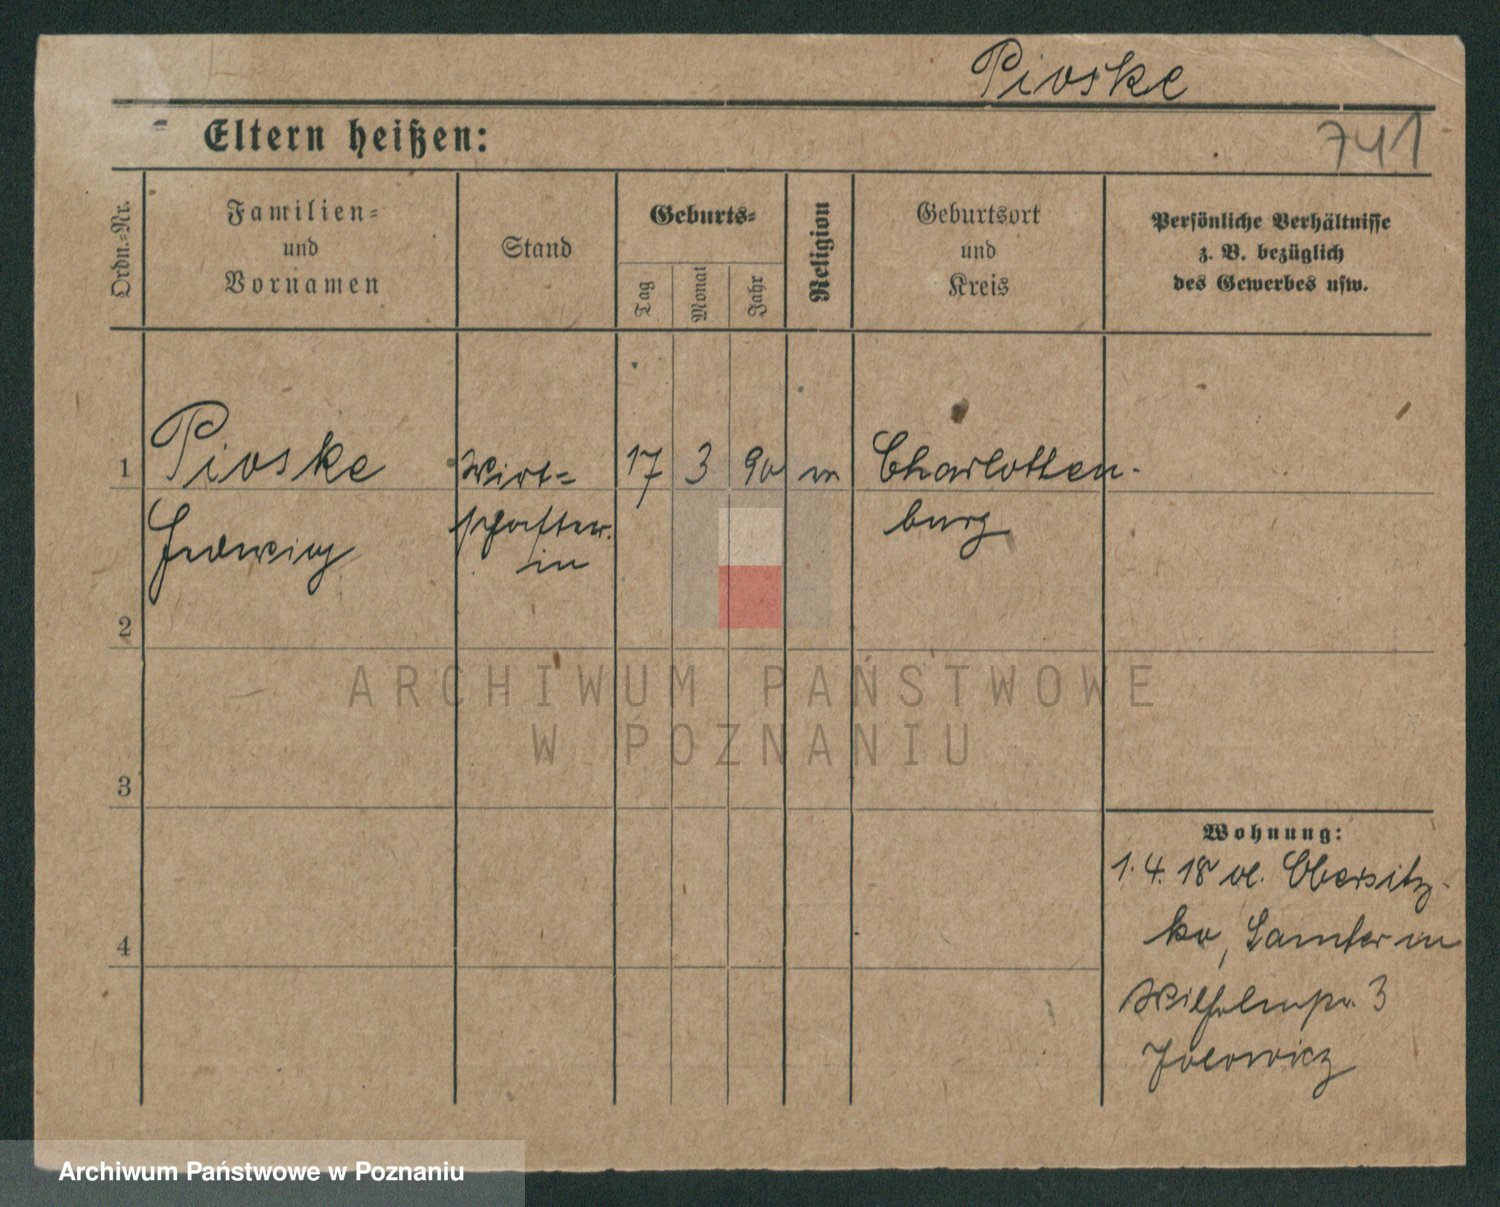 Pioske
Eltern heißen:
741
Ordn.-Nr.
Familien-
und
Vornamen
Stand
Geburts-
Tag
Monat
Jahr
Religion
Geburtsort
und
Kreis
Persönliche Verhältnisse
z. B. bezüglich
des Gewerbes usw.
1
Pioske
Wirt-
17
3
90
Charlotten-
Hedwig
schafter-
burg
in
2
ARCHIWUM PAŃSTWOWE
W POZNANIU
3
Wohnung:
1. 4. 18 Obersitz-
ko, Samter
4
Wilhelmpl. 3
Jolowicz
Archiwum Państwowe w Poznaniu